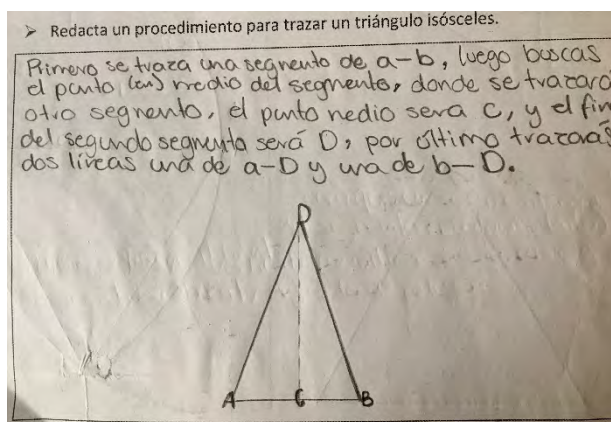 ➤ Redacta un procedimiento para trazar un triángulo isósceles.
Primero se traza una segnento de a-b, luego buscas
el punto (en) medio del segmento, donde se trazara
otro segnento, el punto nedio sera C, y el fin
del segundo segnento será D, por último trazaras
dos líneas una de a-D y una de b-D.
D
A C B